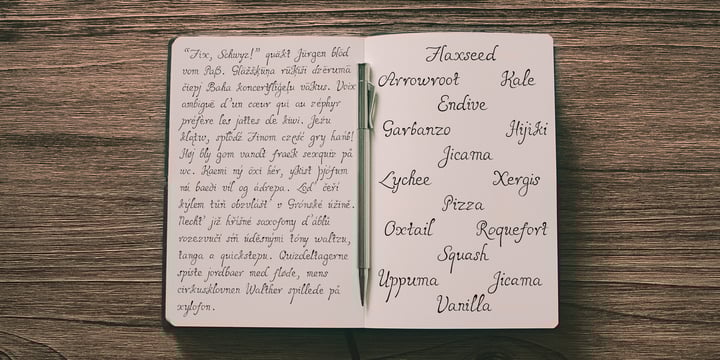 “Fix, Schwyz!” quäkt Jürgen blöd
vom Paß. Glāžšķūņa rūķīši dzērumā
čiepj Baha koncertflīģeļu vākus. Voix
ambiguë d'un cœur qui au zéphyr
préfère les jattes de kiwi. Jeżu
klątw, spłódź Finom część gry hańb!
Høj bly gom vandt fræk sexquiz på
wc. Kæmi ný öxi hér, ykist þjófum
nú bæði víl og ádrepa. Loď čeří
kýlem tůň obzvlášť v Grónské úžině.
Nechť již hříšné saxofony ďáblů
rozezvučí síň úděsnými tóny waltzu,
tanga a quickstepu. Quizdeltagerne
spiste jordbær med fløde, mens
cirkusklovnen Walther spillede på
xylofon.
Flaxseed
Arrowroot Kale
Endive
Garbanzo Hijiki
Jicama
Lychee Xergis
Pizza
Oxtail Roquefort
Squash
Uppuma Jicama
Vanilla